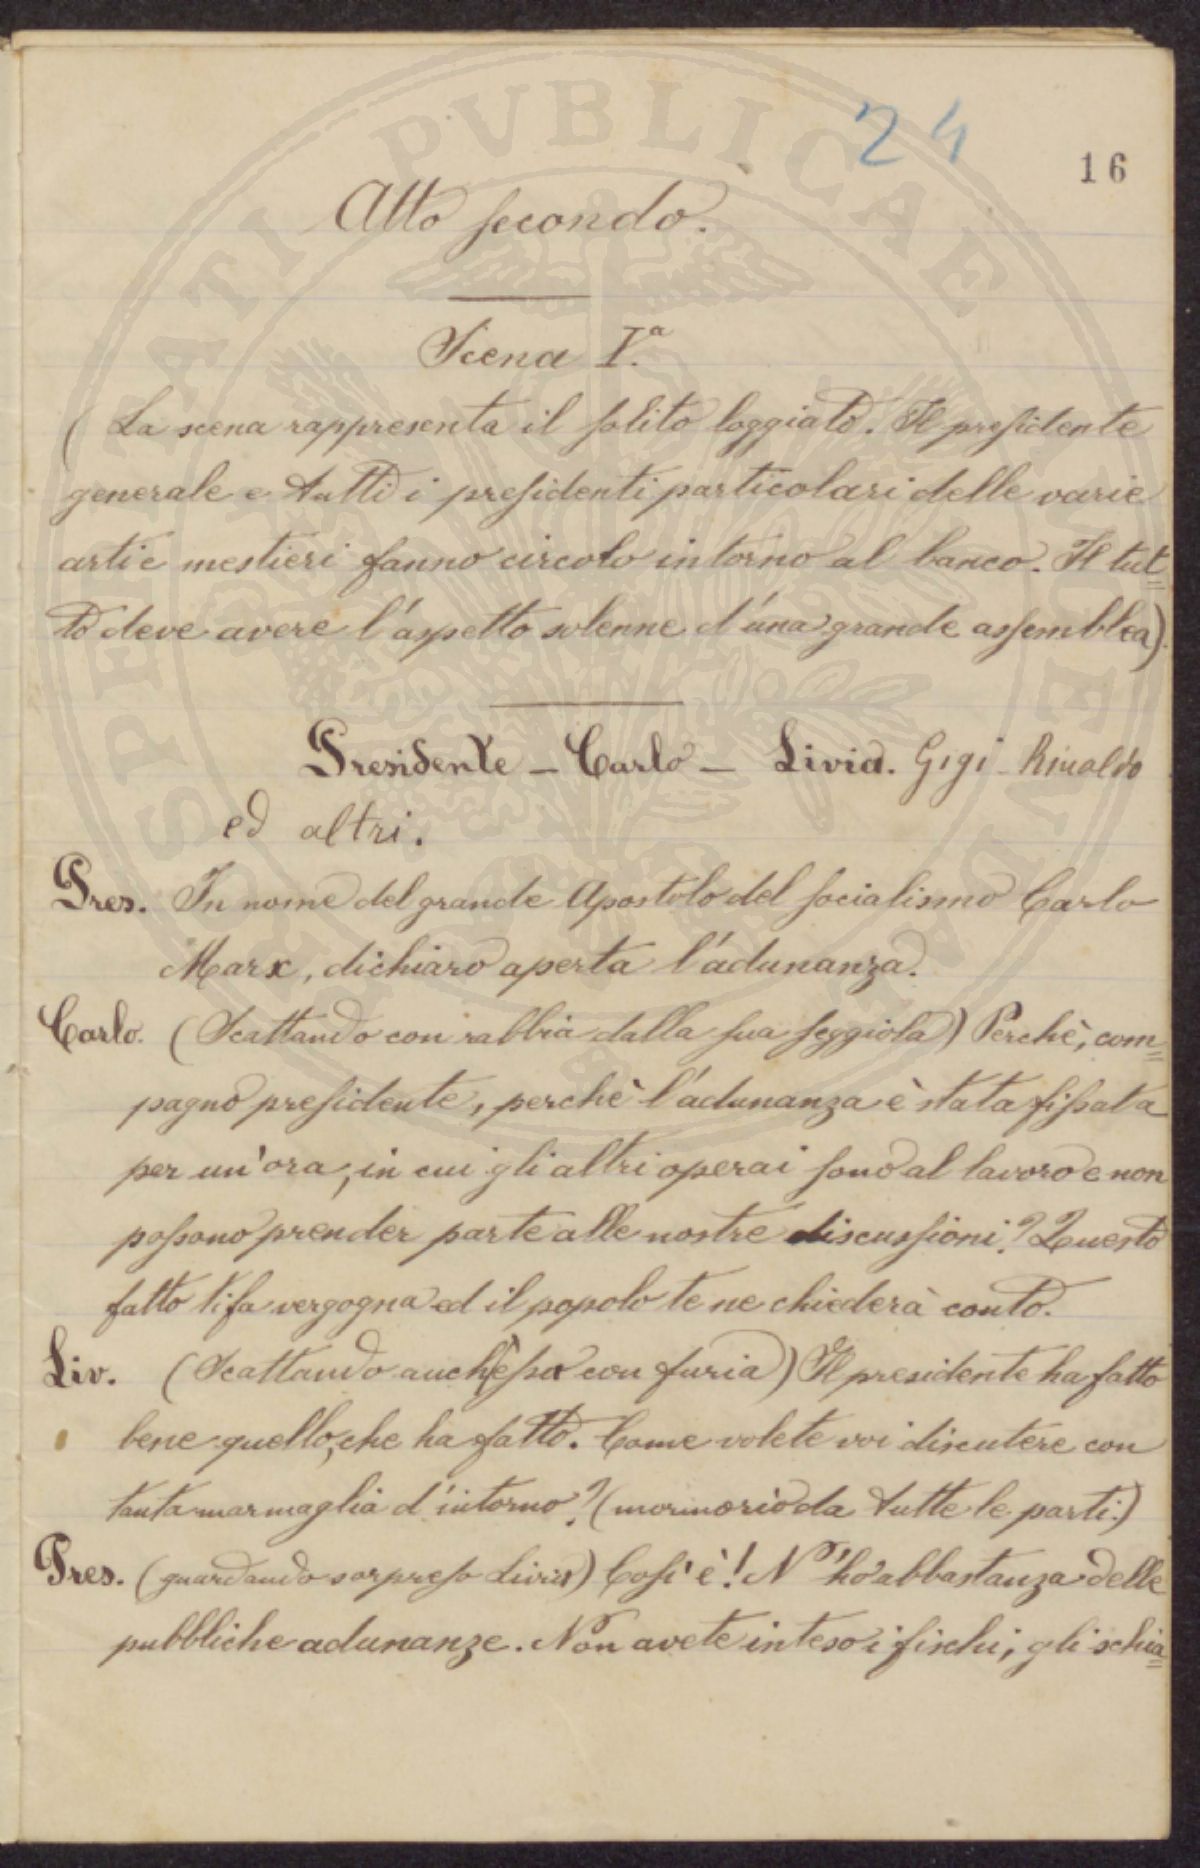 24
16
Atto secondo.
Scena I.ª
(La scena rappresenta il solito loggiato. Il presidente
generale e tutti i presidenti particolari delle varie
arti e mestieri fanno circolo intorno al banco. Il tut=
to deve avere l'aspetto solenne d'una grande assemblea).
Presidente – Carlo – Livia. Gigi – Rinaldo
ed altri.
Pres. In nome del grande Apostolo del socialismo Carlo
Marx, dichiaro aperta l'adunanza.
Carlo. (Scattando con rabbia dalla sua seggiola) Perchè, com=
pagno presidente, perchè l'adunanza è stata fissata
per un'ora, in cui gli altri operai sono al lavoro e non
possono prender parte alle nostre discussioni? Questo
fatto ti fa vergogna ed il popolo te ne chiederà conto.
Liv. (Scattando anch'essa con furia) Il presidente ha fatto
bene quello, che ha fatto. Come volete voi discutere con
tanta marmaglia d'intorno? (mormorio da tutte le parti.)
Pres. (guardando sorpreso Livia) Così è! N'ho abbastanza delle
pubbliche adunanze. Non avete inteso i fischi, gli schia=